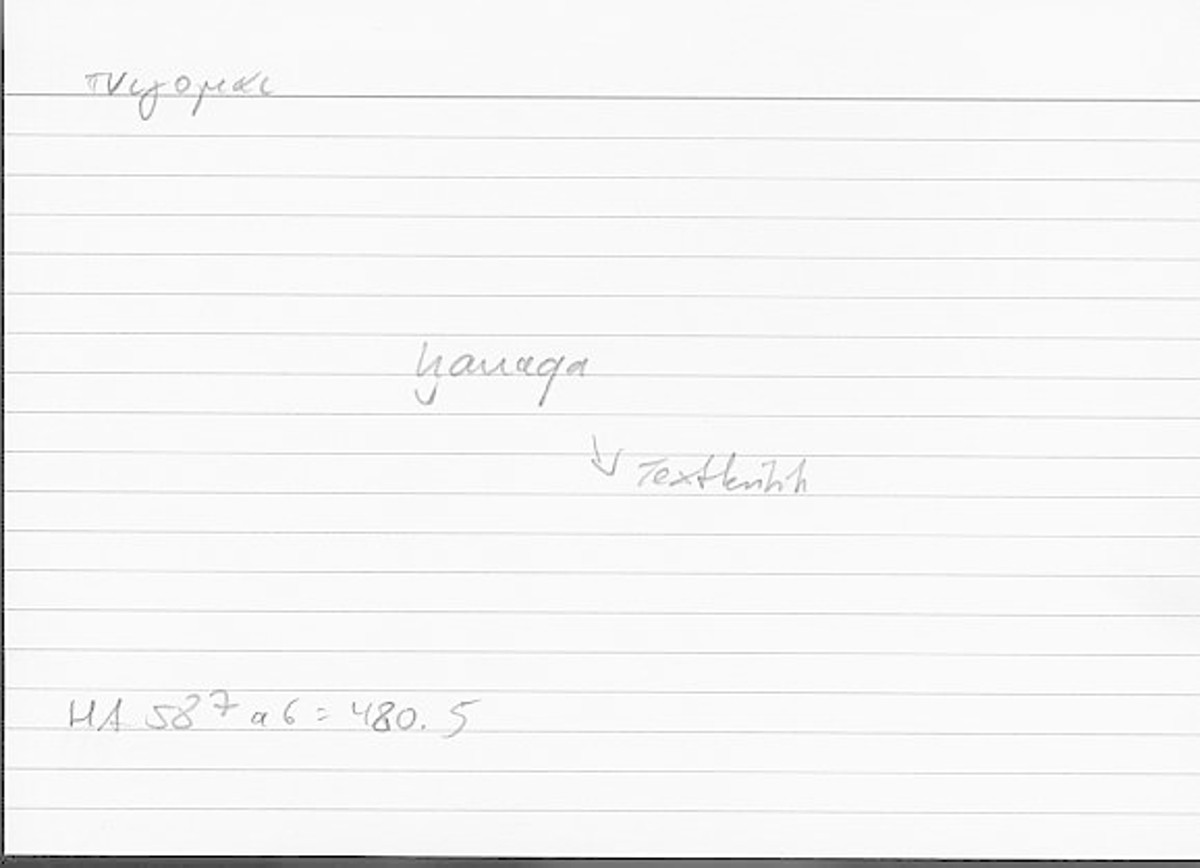 πνιγομαι
ḫanaqa
↘ Textkritik
HA 587 a6 = 480.5